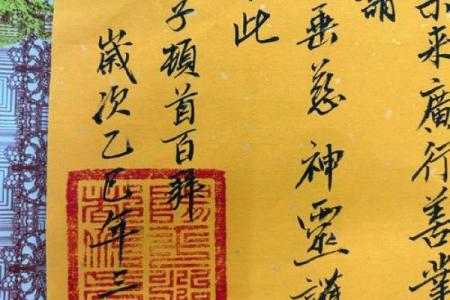 来廣行善業
請
垂慈神靈護
此
子頓首百拜
歲次乙巳年三